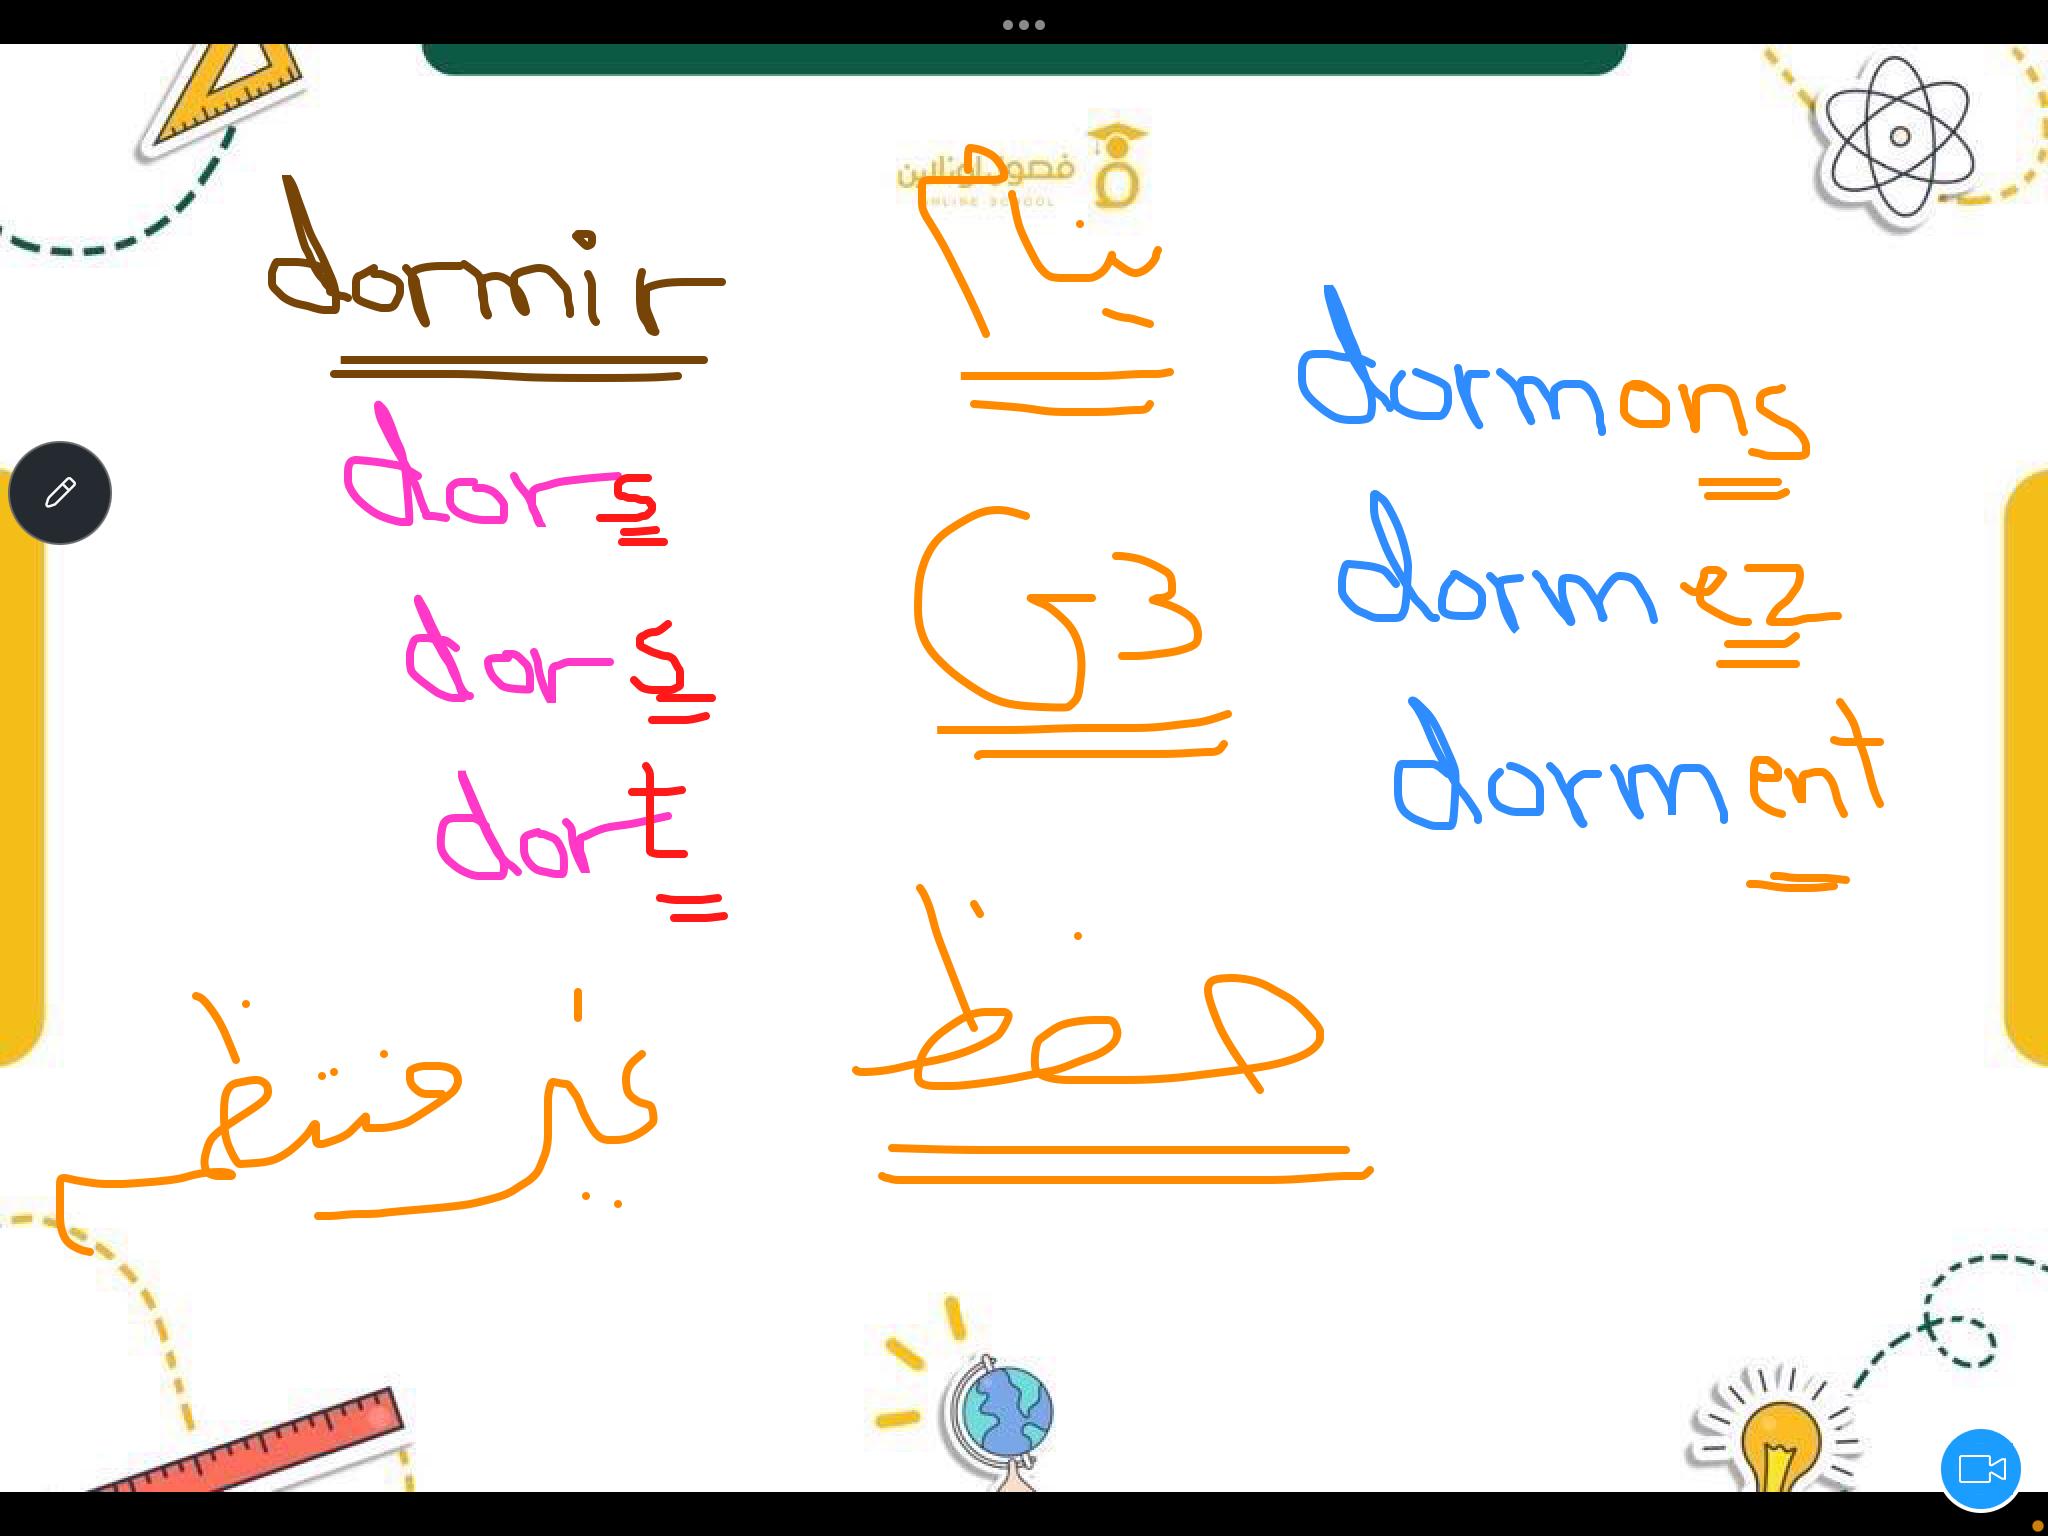 فصول اونلاين
ONLINE SCHOOL
dormir
ينام
dors
dors
dort
G3
dormons
dormez
dorment
حفظ
غير منتظم